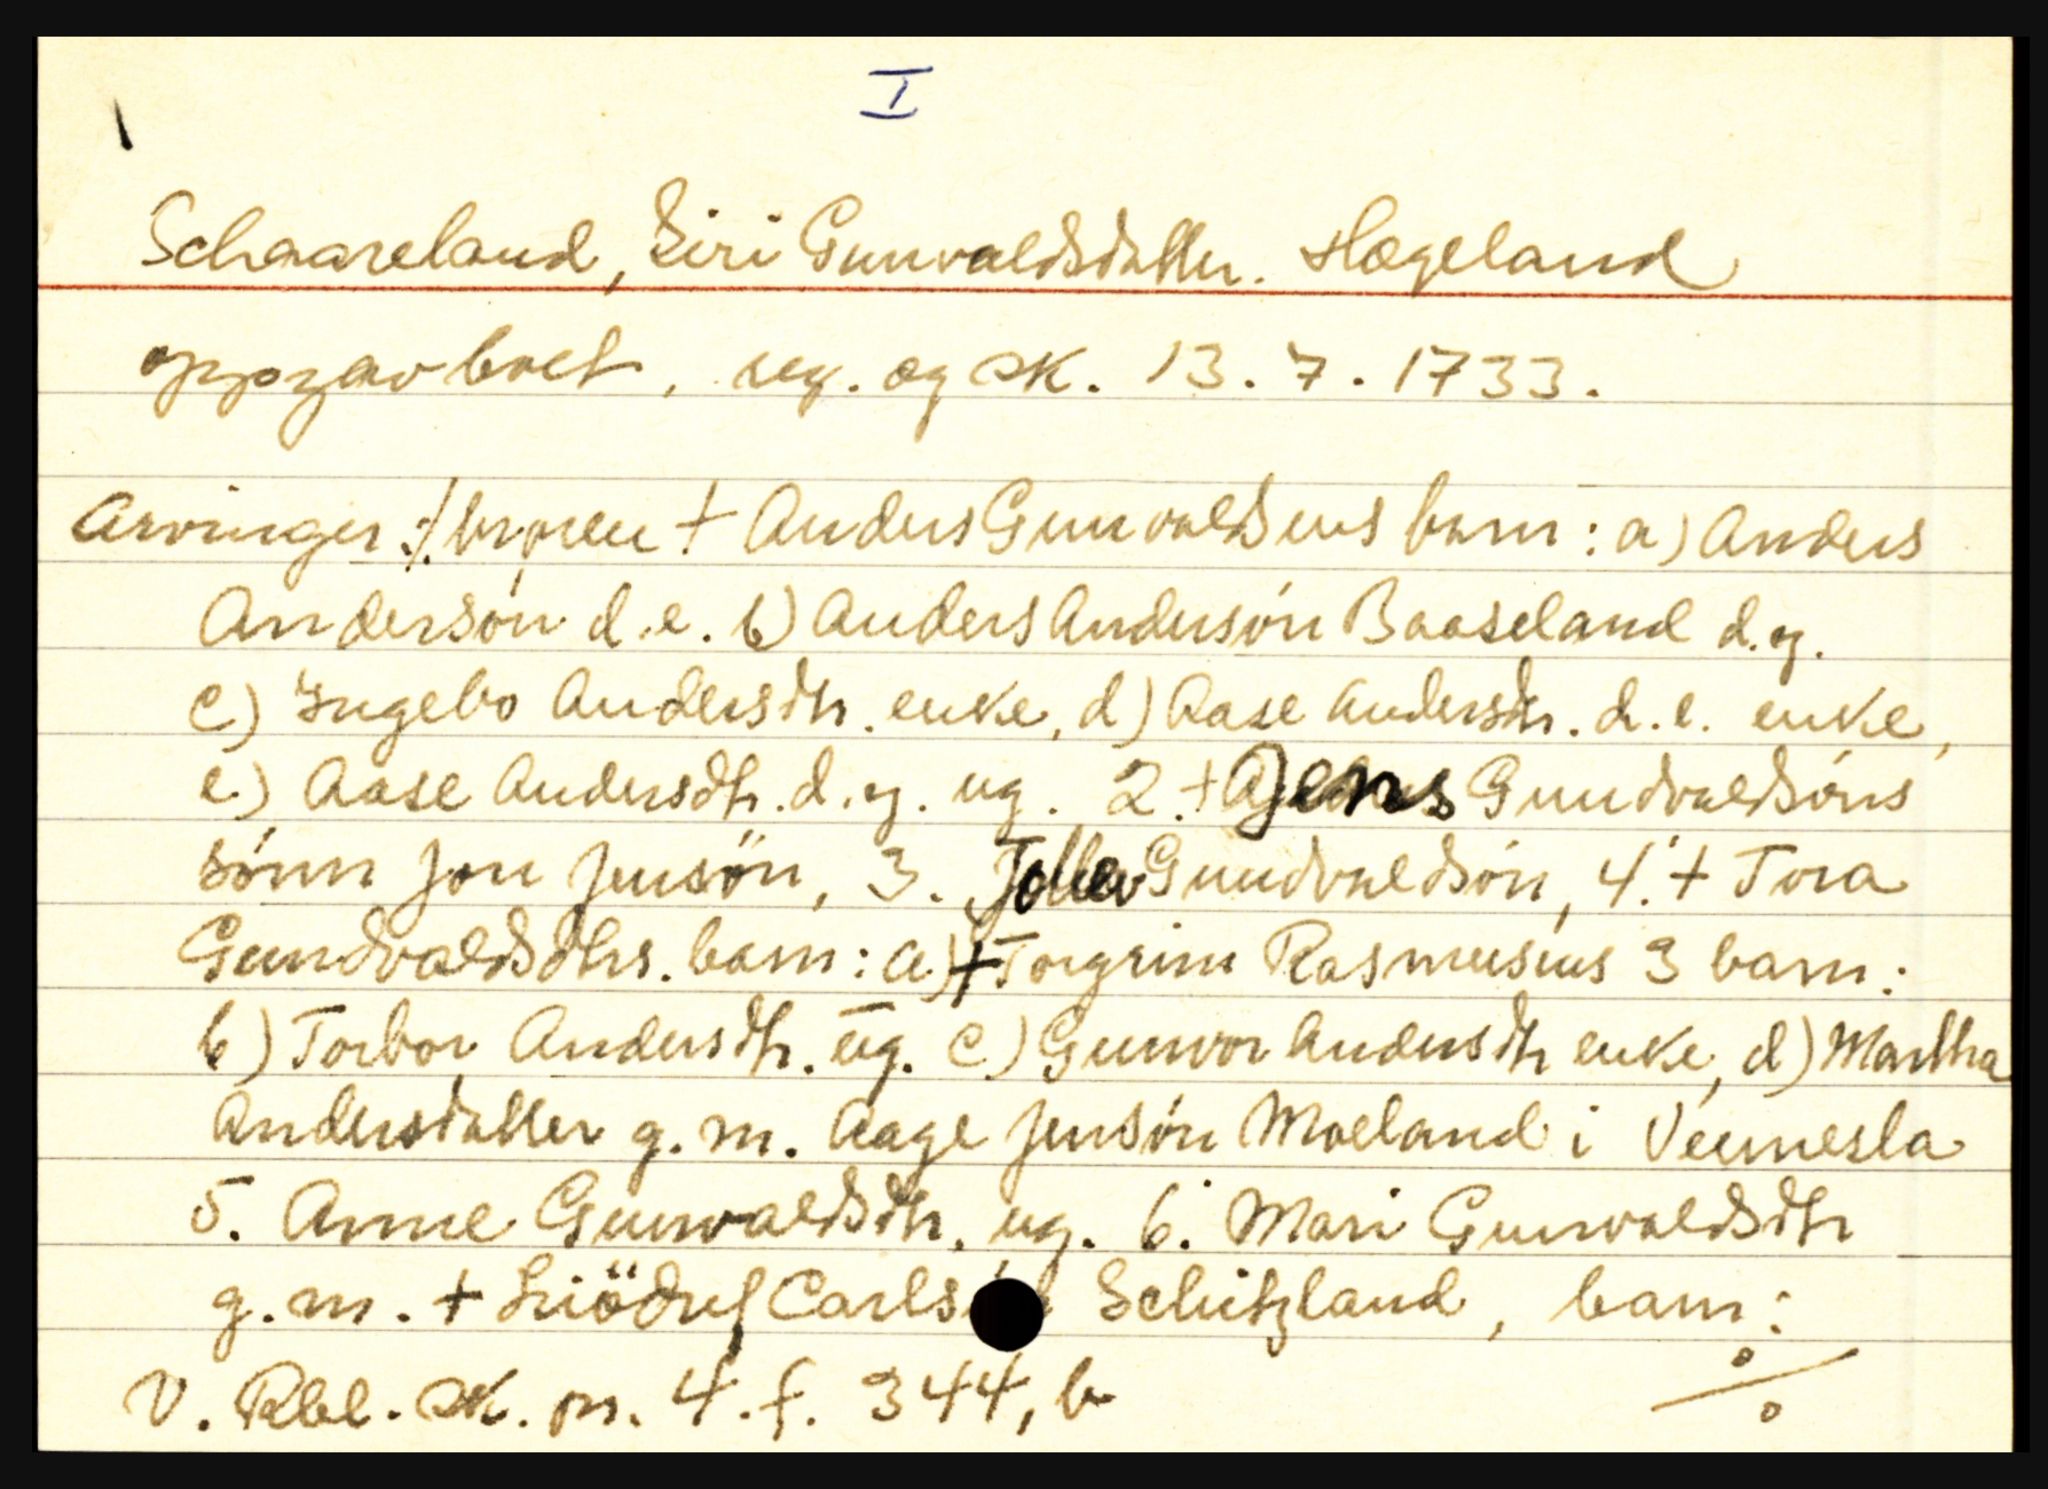 I
Schaareland, Siri Gunvaldsdatter. Hægeland
reg. og sk. 13. 7. 1733.
Arvinger: 1. † Anders Gunvaldsens barn: a) Anders
Andersön d.e. b) Anders Andersön Baaseland d.y.
c) Ingebo Andersdtr. enke, d) Aase Andersdtr. d.e. enke,
e) Aase Andersdtr. d.y. ug. 2. † Jens Gundvaldsöns
sönn Jon Jensön, 3. Tollev Gundvaldsön, 4. † Tora
Gundvaldsdtrs. barn: a) † Torgrim Rasmusens 3 barn:
b) Torbor Andersdtr. ug. c) Gunvor Andersdtr enke, d) Martha
Andersdatter g.m. Aage Jensön Moeland i Vennesla
5. Anne Gunvaldsdtr. ug. 6. Mari Gunvaldsdtr
g.m. † Carlsön barn:
V. Rbl. sk. pr. 4. f. 344, b
%